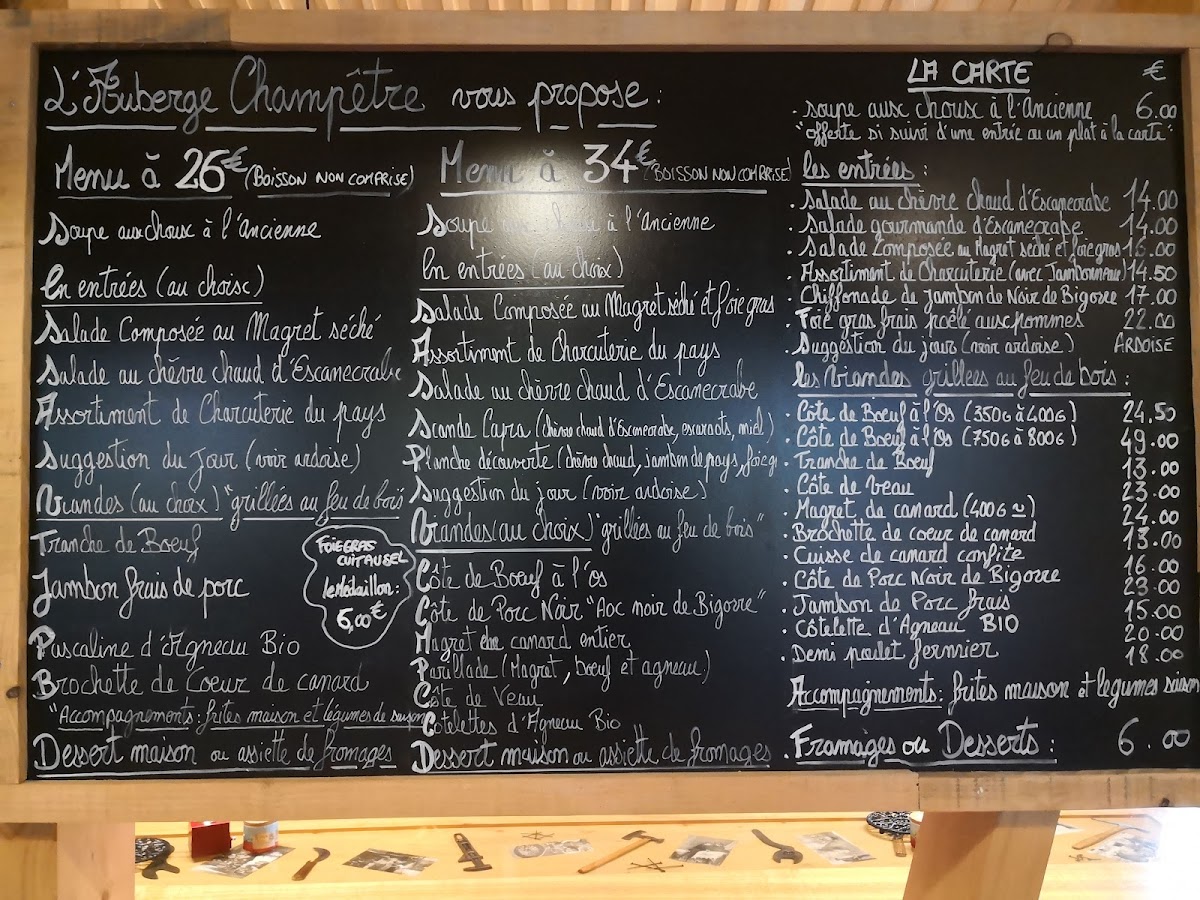 L'Auberge Champêtre vous propose :
Menu à 26€ (BOISSON NON COMPRISE)
Soupe aux choux à l'Ancienne
En entrées (au choix)
Salade Composée au Magret séché
Salade au chèvre chaud d'Escanecrabe
Assortiment de Charcuterie du pays
Suggestion du Jour (voir ardoise)
Viandes (au choix) "grillées au feu de bois
Tranche de Boeuf
Jambon frais de porc
Pascaline d'Agneau Bio
Brochette de Coeur de canard
"Accompagnements : frites maison et légumes de saison
Dessert maison ou assiette de fromages
FOIE GRAS
CUIT AU SEL
le Médaillon :
6,00€
Menu à 34€ (BOISSON NON COMPRISE)
Soupe aux choux à l'Ancienne
En entrées (au choix)
Salade Composée au Magret séché et foie gras
Assortiment de Charcuterie du pays
Salade au chèvre chaud d'Escanecrabe
Scande Capra (chèvre chaud d'Escanecrabe, escargots, miel)
Planche découverte (chèvre chaud, jambon de pays, foie g
Suggestion du jour (voir ardoise)
Viandes (au choix) "grillées au feu de bois"
Côte de Boeuf à l'os
Côte de Porc Noir "Aoc noir de Bigorre"
Magret de canard entier
Parillade (Magret, boeuf et agneau)
Côte de Veau
Côtelettes d'Agneau Bio
Dessert maison ou assiette de fromages
LA CARTE €
. soupe aux choux à l'Ancienne 6.00
"offerte si suivi d'une entrée ou un plat à la carte"
les entrées :
. Salade au chèvre chaud d'Escanecrabe 14.00
. Salade gourmande d'Escanecrabe 14.00
. Salade Composée au Magret séché et foie gras 16.00
. Assortiment de Charcuterie (avec Jambonneau) 14.50
. Chiffonade de jambon de Noir de Bigorre 17.00
. Foie gras frais poêlé aux pommes 22.00
. Suggestion du jour (voir ardoise) ARDOISE
les Viandes grillées au feu de bois :
. Côte de Boeuf à l'Os (350G à 400G) 24.50
. Côte de Boeuf à l'Os (750G à 800G) 49.00
. Tranche de Boeuf 13.00
. Côte de Veau 23.00
. Magret de canard (400G ~) 24.00
. Brochette de coeur de canard 13.00
. Cuisse de canard confite 16.00
. Côte de Porc Noir de Bigorre 23.00
. Jambon de Porc frais 15.00
. Côtelette d'Agneau BIO 20.00
. Demi poulet fermier 18.00
Accompagnements : frites maison et légumes saison
Fromages ou Desserts : 6.00